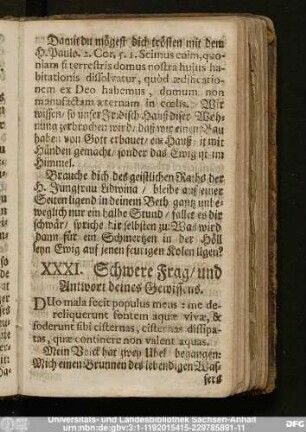 Damit du mögest dich trösten mit dem
H. Paulo. 2. Cor. 5. 1. Scimus enim, quo-
niam si terrestris domus nostra huius ha-
bitationis dissolvatur, quòd ædificatio-
nem ex Deo habemus, domum non
manufactam æternam in cœlis. Wir
wissen/ so unser Irdisch Hauß diser Woh-
nung zerbrochen wird/ daß wir einen Bau
haben von Gott erbauet/ ein Hauß/ nit mit
Händen gemacht/ sonder das Ewig ist im
Himmel.
Brauche dich des geistlichen Raths der
H. Jungfrau Lidwina/ bleibe auf einer
Seiten ligend in deinem Beth gantz unbe-
weglich nur ein halbe Stund/ fallet es dir
schwär/ spriche dir selbsten zu: Was wird
dann für ein Schmertzen in der Höll
seyn Ewig auf jenen feurigen Kolen ligen?
XXXI. Schwere Frag/ und
Antwort deines Gewissens.
DUo mala fecit populus meus: me de-
reliquerunt fontem aquæ vivæ, &
foderunt sibi cisternas, cisternas dissipa-
tas, quæ continere non valent aquas.
Mein Volck hat zwey Ubel begangen:
Mich einen Brunnen des lebendigen Was-
sers
Universitäts- und Landesbibliothek Sachsen-Anhalt
urn:nbn:de:gbv:3:1-1192015415-229785891-11
DFG